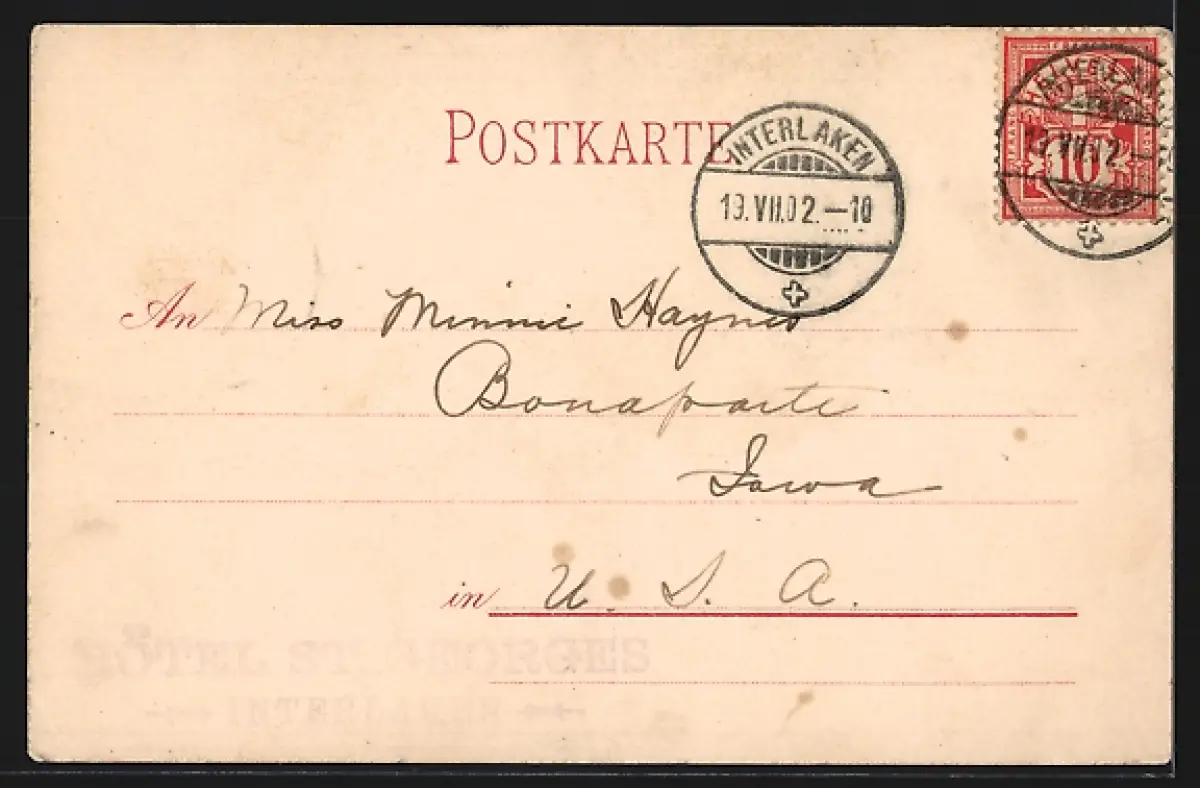 POSTKARTE
INTERLAKEN
19.VII.02.—10
10
An Miss Minnie Haynes
Bonaparte
Iowa
in U. S. A.
HÔTEL ST. GEORGES
INTERLAKEN